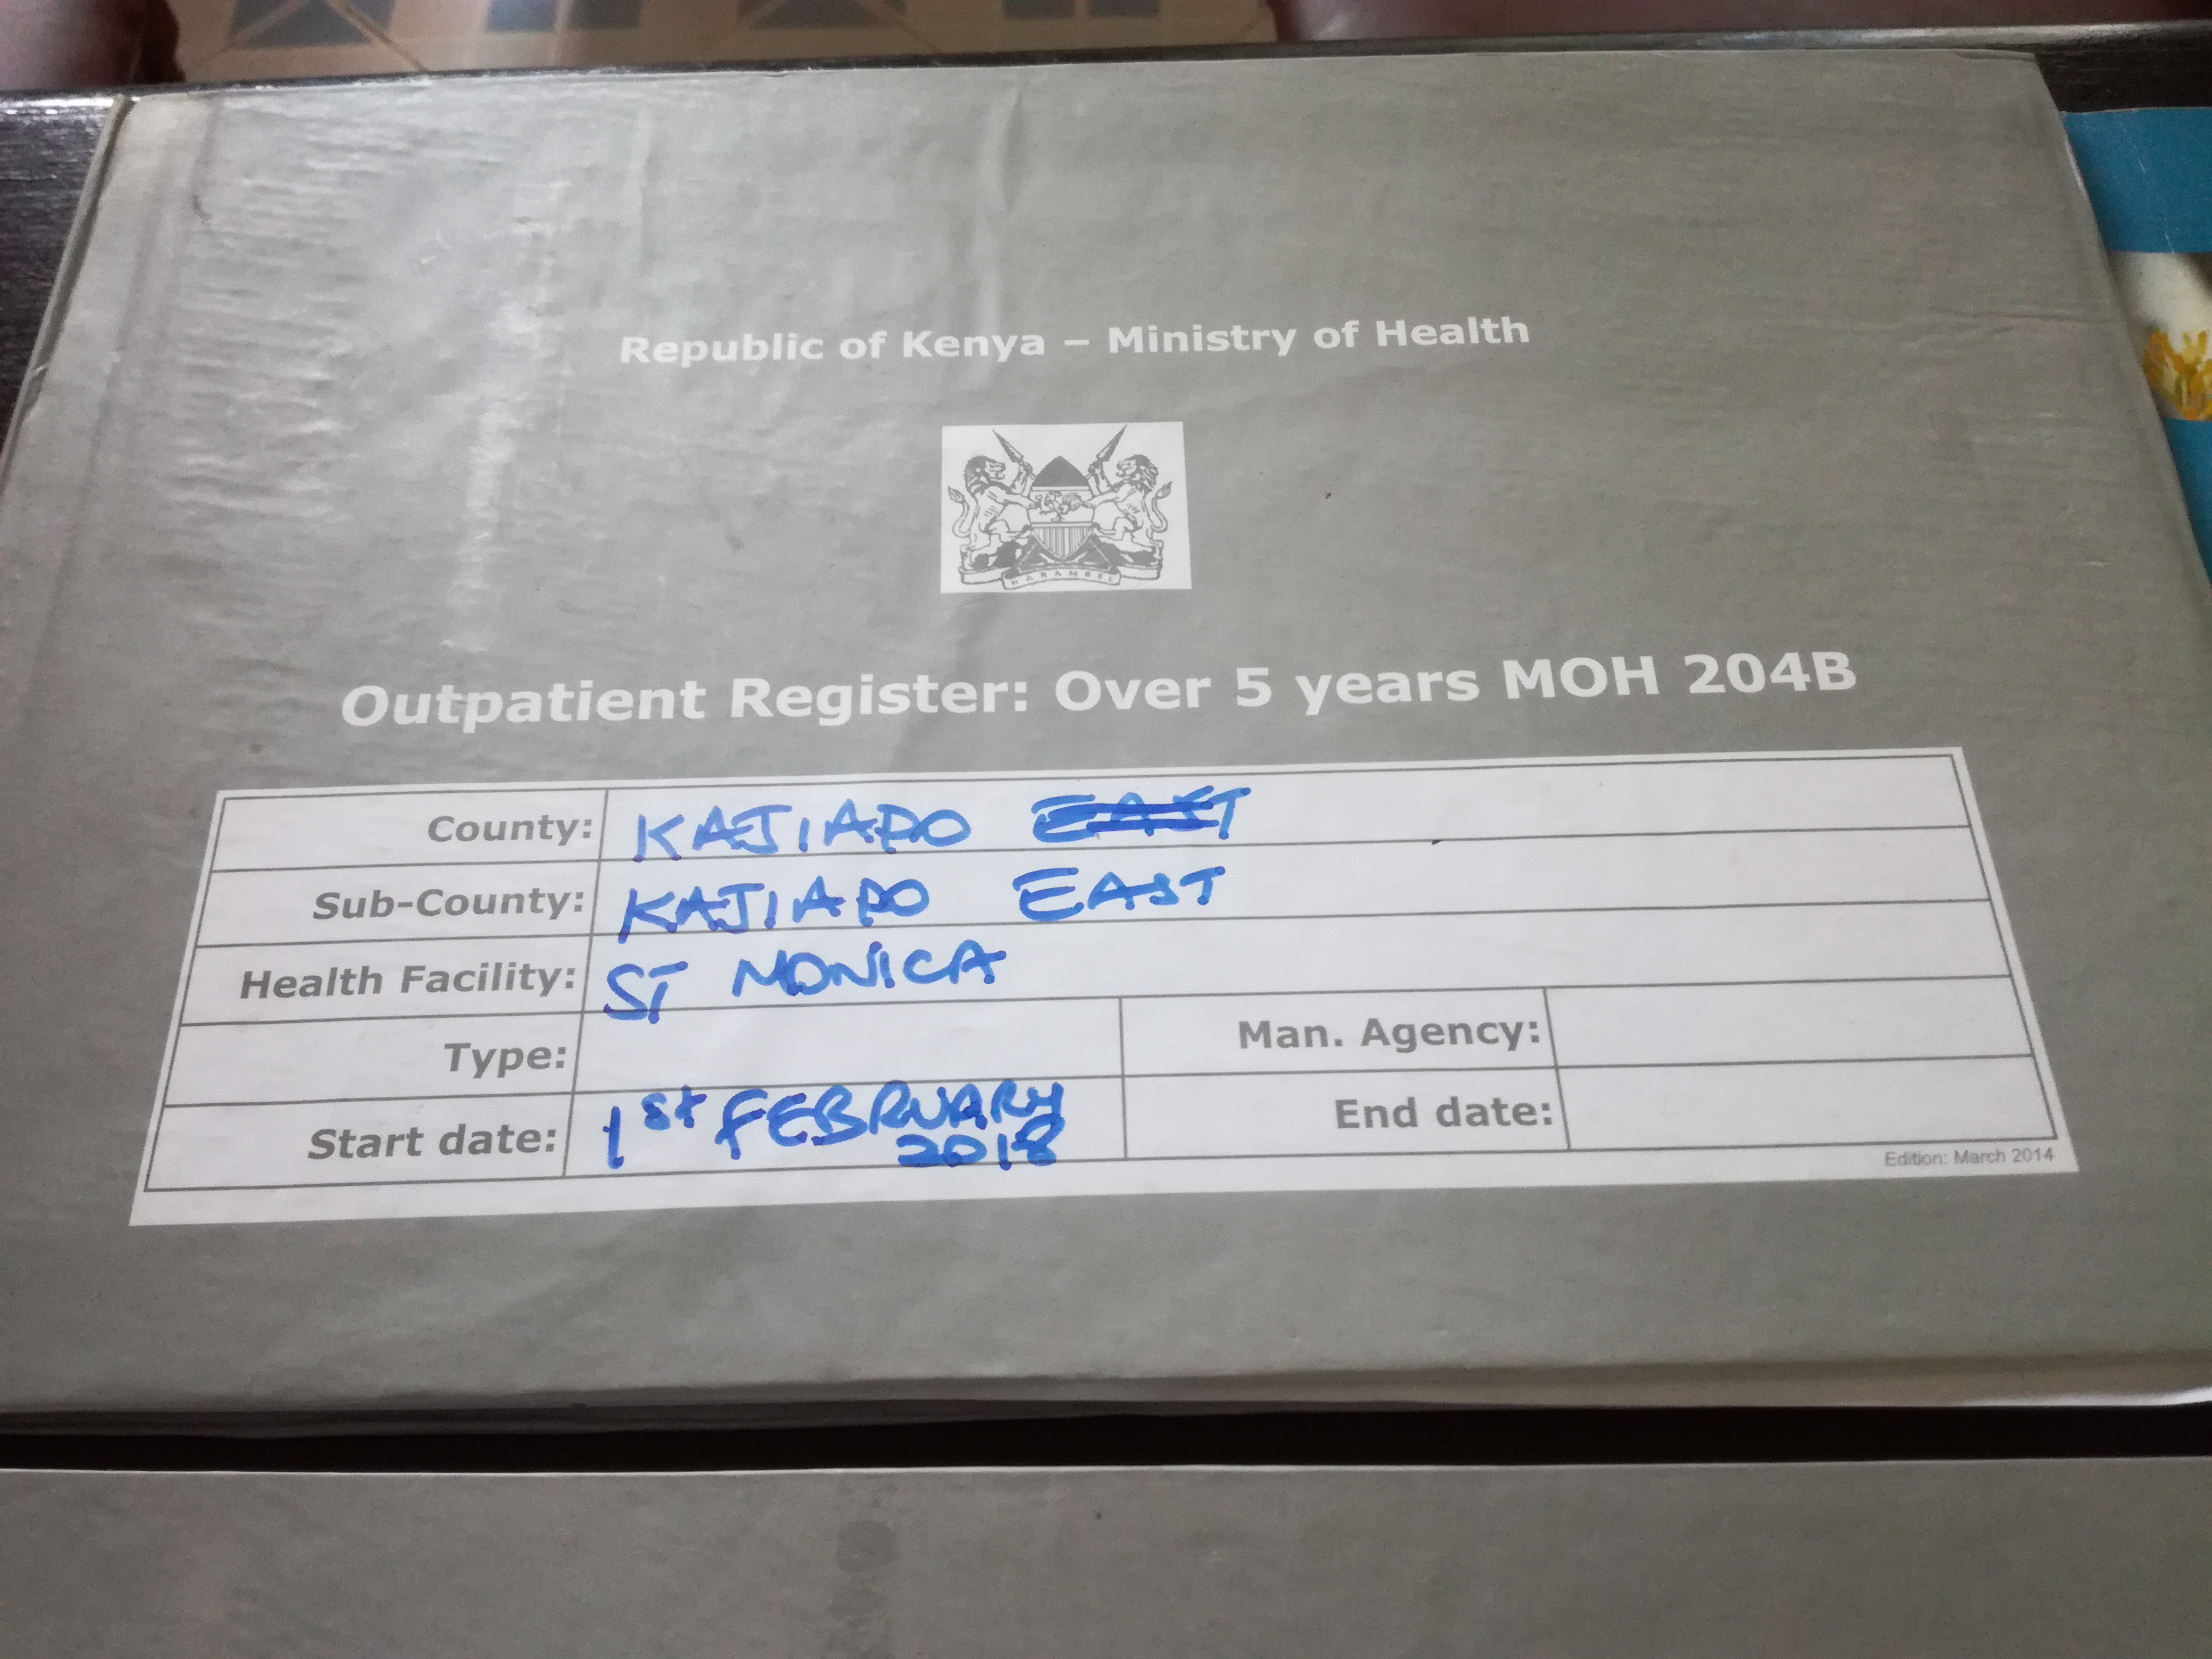 Republic of Kenya – Ministry of Health
HARAMBEE
Outpatient Register: Over 5 years MOH 204B
County: KAJIADO EAST
Sub-County: KAJIADO EAST
Health Facility: ST MONICA
Type: Man. Agency:
Start date: 1st FEBRUARY 2018 End date:
Edition: March 2014